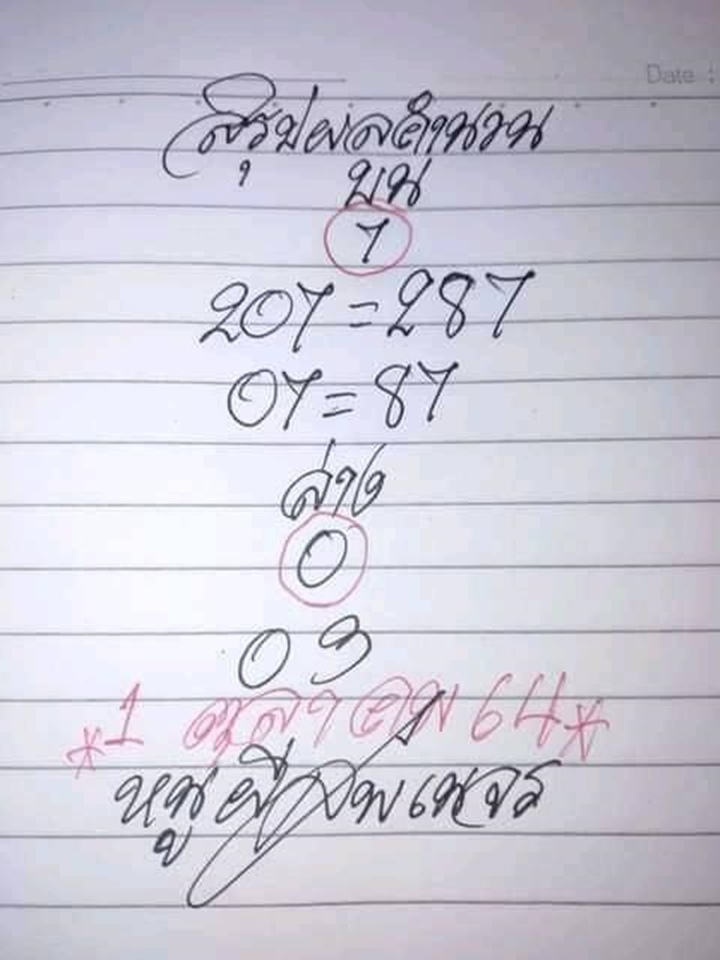 Date :
สรุปผลคำนวน
บน
7
207=287
07=87
ล่าง
0
03
*1 ตุลาคม 64*
หนู